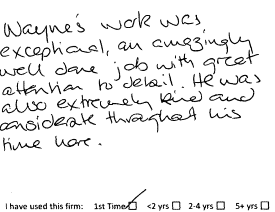 Wayne's work was
exceptional, an amazingly
well done job with great
attention to detail. He was
also extremely kind and
considerate throughout his
time here.
I have used this firm: 1st Time <2 yrs 2-4 yrs 5+ yrs